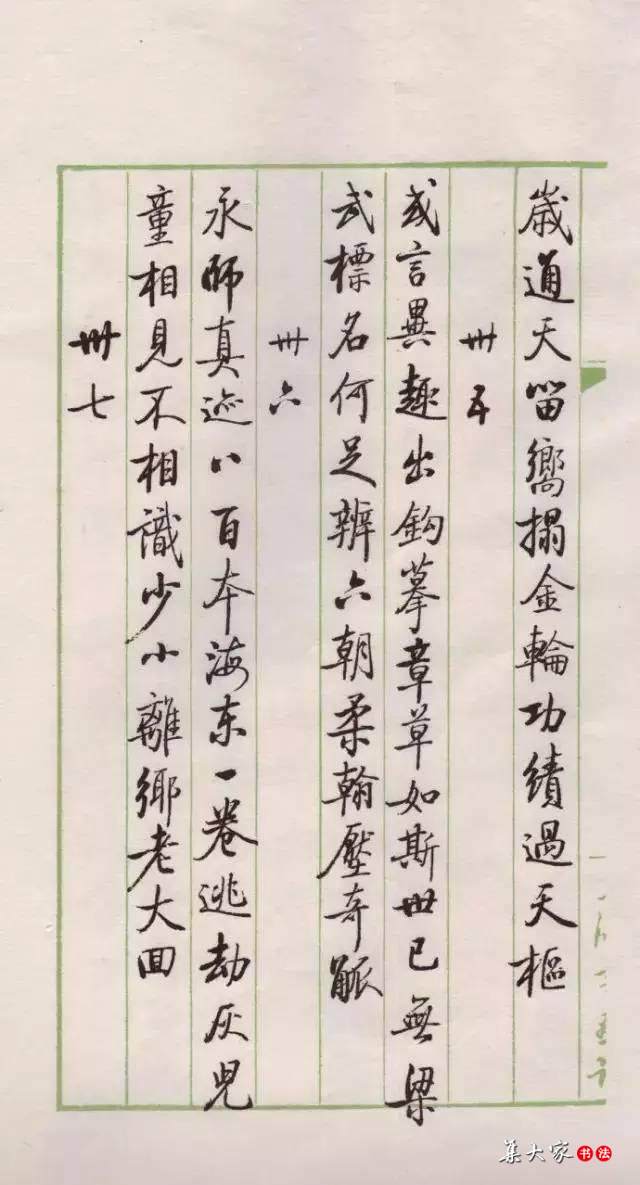 歲通天留嚮搨金輪功績過天樞
卅五
或言異趣出鈎摹章草如斯世已無梁
武標名何足辨六朝柔翰壓奇觚
卅六
永師真迹八百本海东一卷逃劫灰兒
童相見不相識少小離鄉老大囬
卅七
集大家书法